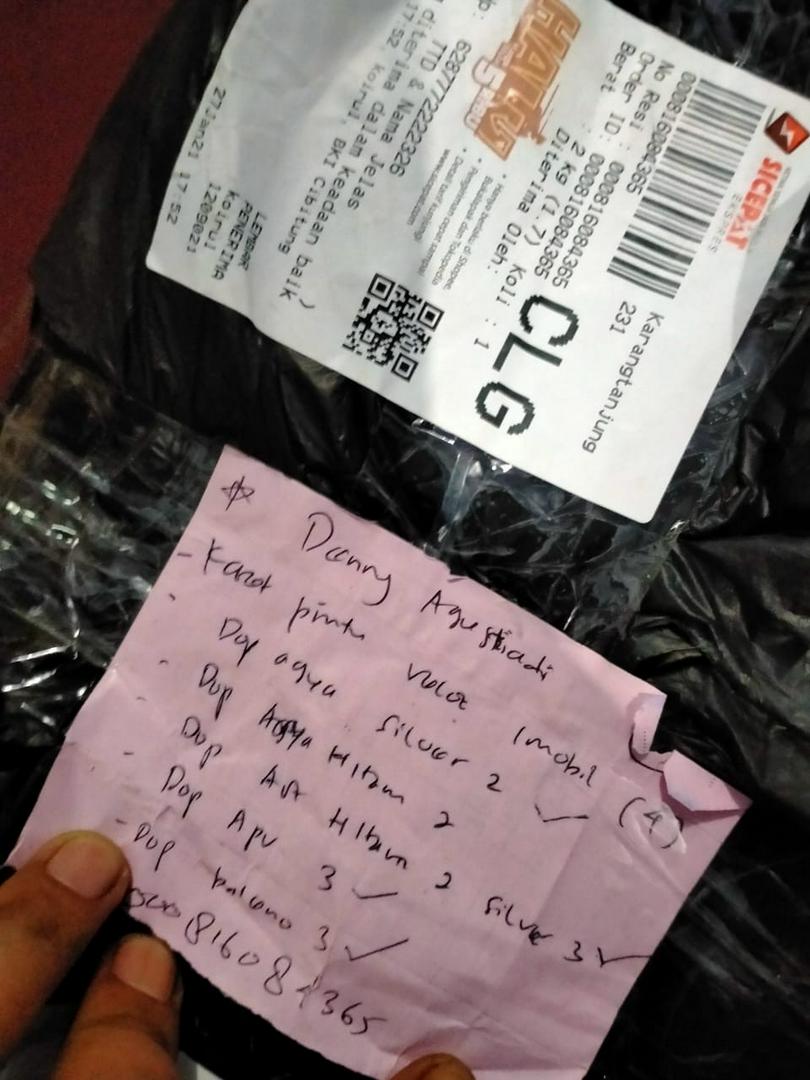 SICEPAT
EKSPRES
000816084365
No Resi : 000816084365
Order ID: 000816084365
Berat : 2 kg (1.7) Koli : 1
Karangtanjung
231
CLG
HALU
Diterima Oleh:
628777222326
TTD & Nama Jelas
diterima dalam Keadaan baik
17:52 Koirul, BKI Cibitung )
LEMBAR
PENERIMA
Koirul
1209021
27Jan21 17:52
Danny Agustiadi
- Karet pintu veloz 1 mobil (4)
- Dop agya silver 2 ✓
- Dop Agya Hitam 2
- Dop Ayla Hitam 2 silver 3 ✓
- Dop Apv 3 ✓
- Dop baleno 3 ✓
000816084365